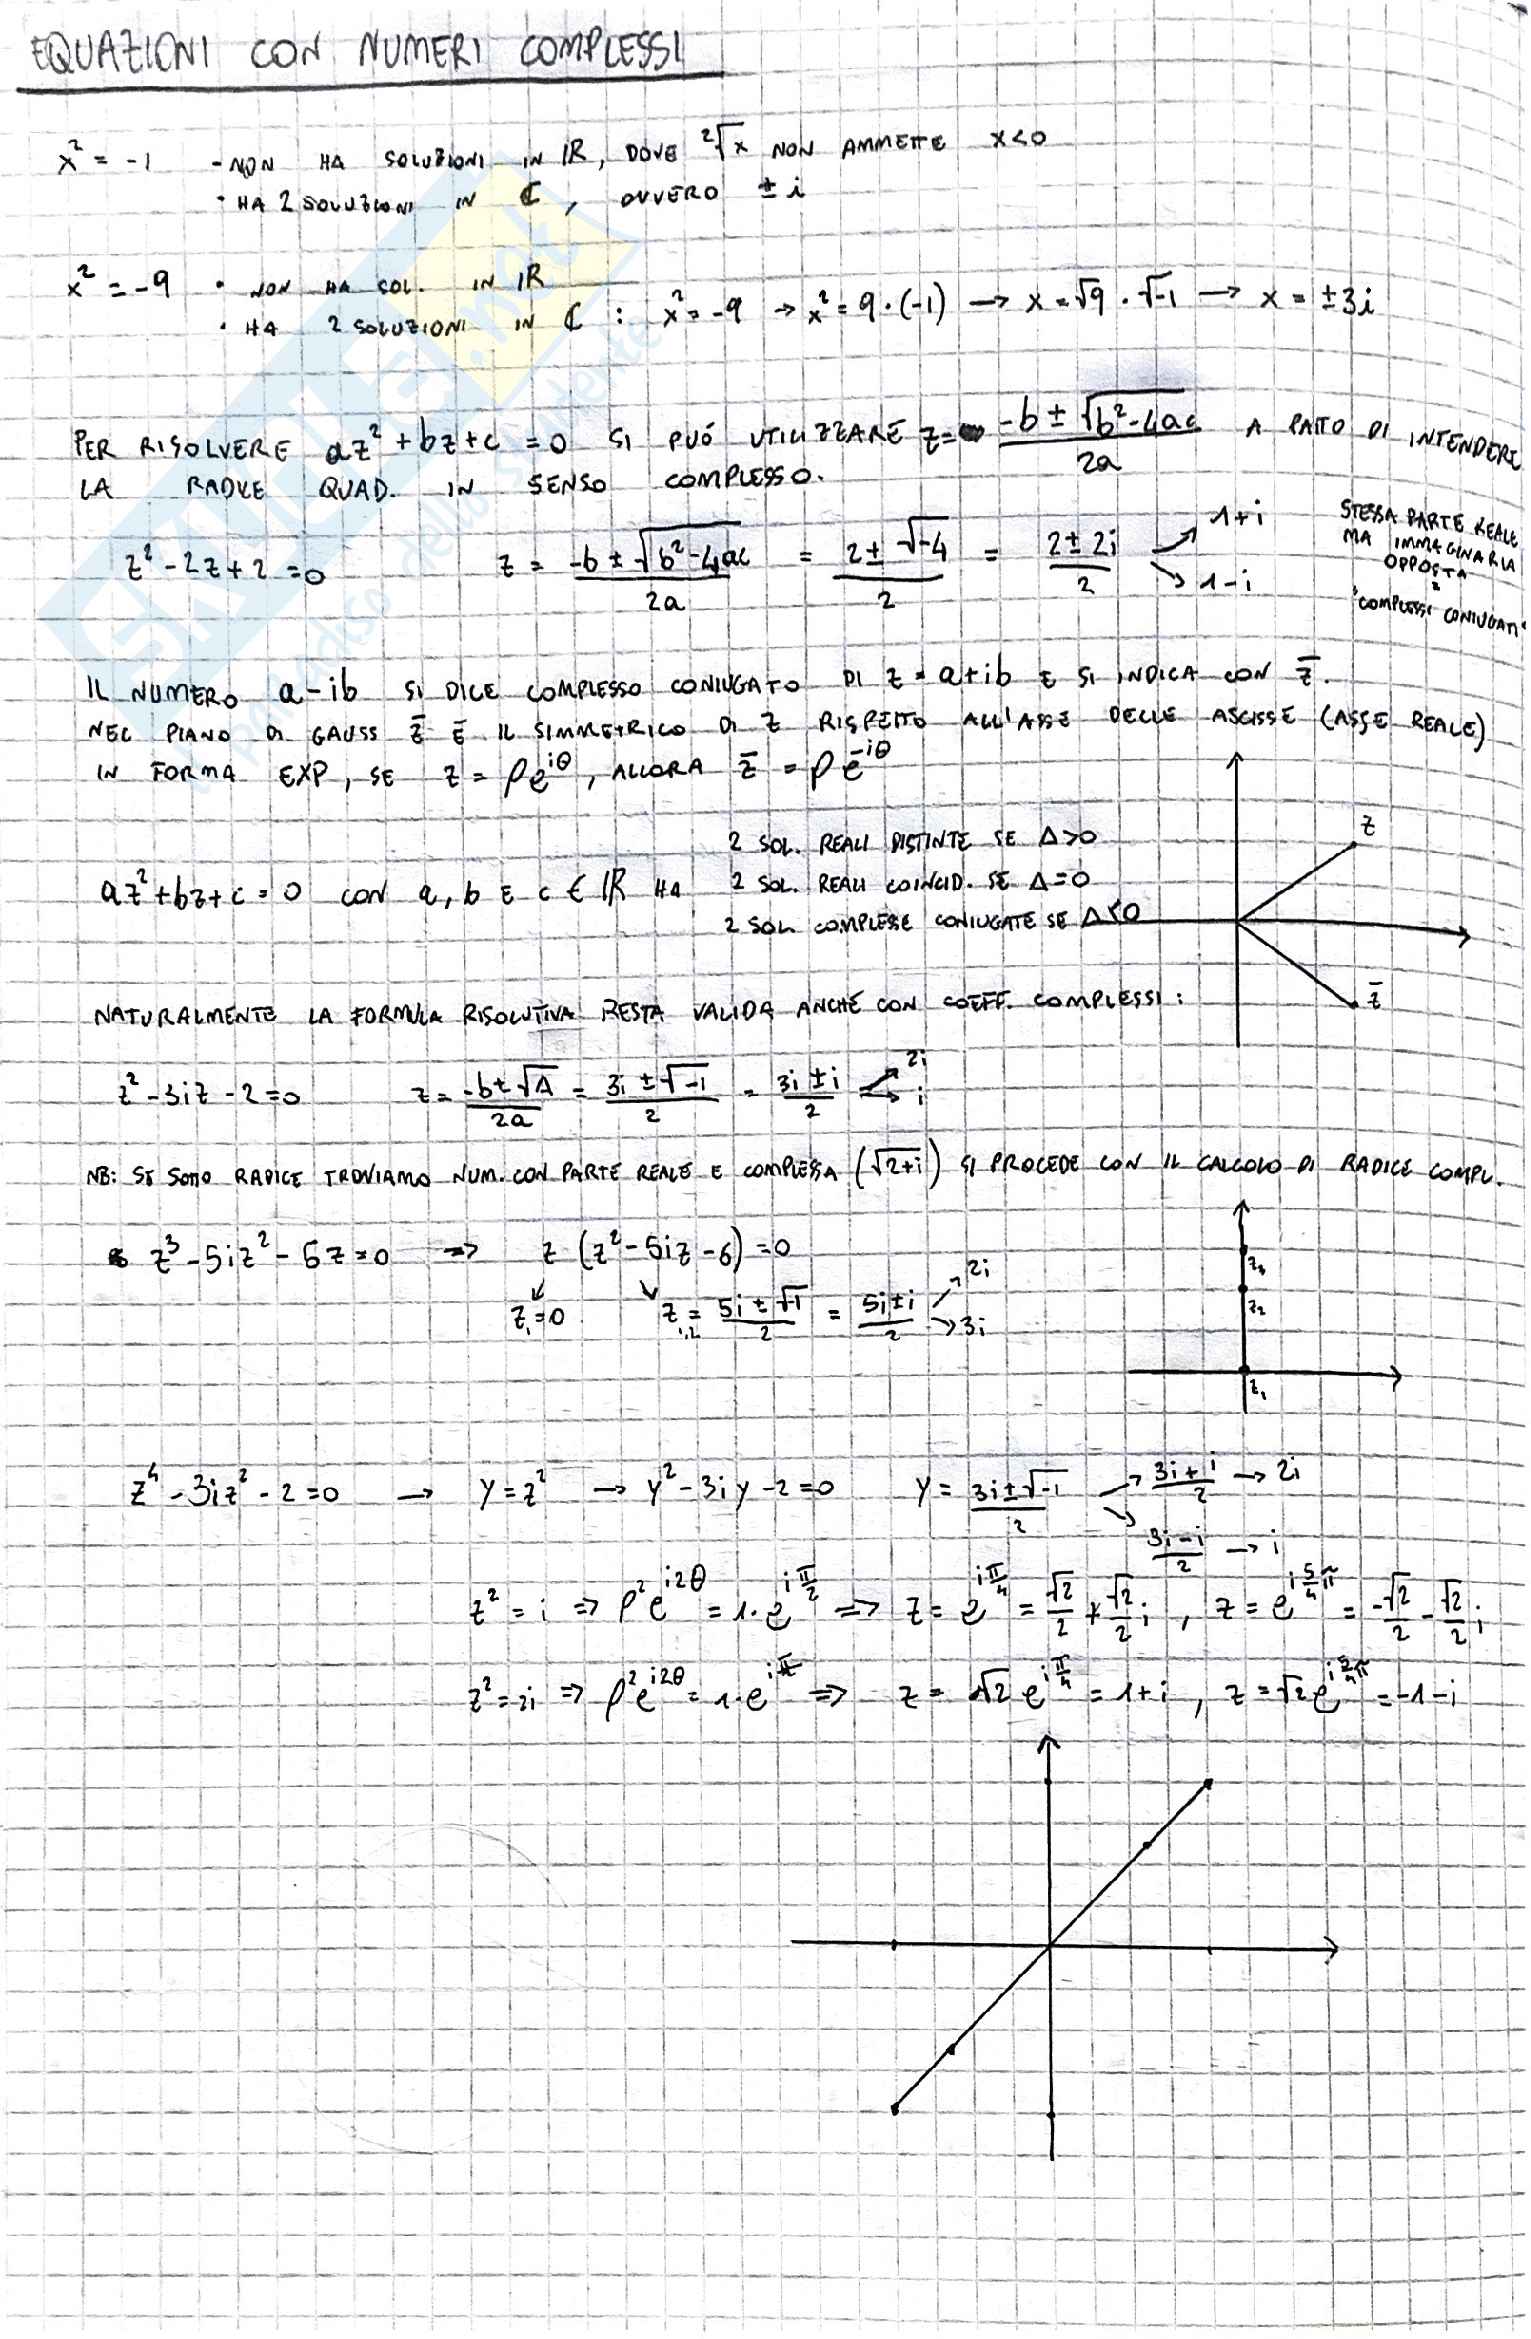 EQUAZIONI CON NUMERI COMPLESSI
x² = -1 - NON HA SOLUZIONI IN ℝ, DOVE ²√x NON AMMETTE x<0
· HA 2 SOLUZIONI IN ℂ, OVVERO ± i
x² = -9 · NON HA SOL. IN ℝ
· HA 2 SOLUZIONI IN ℂ : x² = -9 → x² = 9·(-1) → x = √9 · √-1 → x = ±3i
PER RISOLVERE az² + bz + c = 0 SI PUÓ UTILIZZARE z = (-b ± √(b²-4ac))/2a A PATTO DI INTENDERE
LA RADICE QUAD. IN SENSO COMPLESSO.
z² - 2z + 2 = 0 z = (-b ± √(b²-4ac))/2a = (2 ± √-4)/2 = (2 ± 2i)/2 ↗ 1+i ↘ 1-i
STESSA PARTE REALE
MA IMMAGINARIA
OPPOSTA
"COMPLESSI CONIUGATI"
IL NUMERO a-ib SI DICE COMPLESSO CONIUGATO DI z = a+ib E SI INDICA CON z̄.
NEL PIANO DI GAUSS z̄ È IL SIMMETRICO DI z RISPETTO ALL'ASSE DELLE ASCISSE (ASSE REALE)
IN FORMA EXP, SE z = ρe^{iθ}, ALLORA z̄ = ρe^{-iθ}
z
z̄
2 SOL. REALI DISTINTE SE Δ>0
az² + bz + c = 0 CON a, b E c ∈ ℝ HA 2 SOL. REALI COINCID. SE Δ=0
2 SOL. COMPLESSE CONIUGATE SE Δ<0
NATURALMENTE LA FORMULA RISOLUTIVA RESTA VALIDA ANCHE CON COEFF. COMPLESSI:
z² - 3iz - 2 = 0 z = (-b ± √Δ)/2a = (3i ± √-1)/2 = (3i ± i)/2 ↗ 2i ↘ i
NB: SE SOTTO RADICE TROVIAMO NUM. CON PARTE REALE E COMPLESSA (√2+i) SI PROCEDE CON IL CALCOLO DI RADICE COMPL.
z³ - 5iz² - 6z = 0 ⇒ z (z² - 5iz - 6) = 0
z₁ = 0 z₁,₂ = (5i ± √-1)/2 = (5i ± i)/2 ↗ 2i ↘ 3i
z₃
z₂
z₁
z⁴ - 3iz² - 2 = 0 → y = z² → y² - 3iy - 2 = 0 y = (3i ± √-1)/2 ↗ (3i+i)/2 → 2i
↘ (3i-i)/2 → i
z² = i ⇒ ρ²e^{i2θ} = 1·e^{iπ/2} ⇒ z = e^{iπ/4} = √2/2 + √2/2 i, z = e^{i5/4π} = -√2/2 - √2/2 i
z² = 2i ⇒ ρ²e^{i2θ} = 1·e^{iπ} ⇒ z = √2 e^{iπ/4} = 1+i, z = √2 e^{i5/4π} = -1-i
SKUOLA.net
il paradiso dello studente